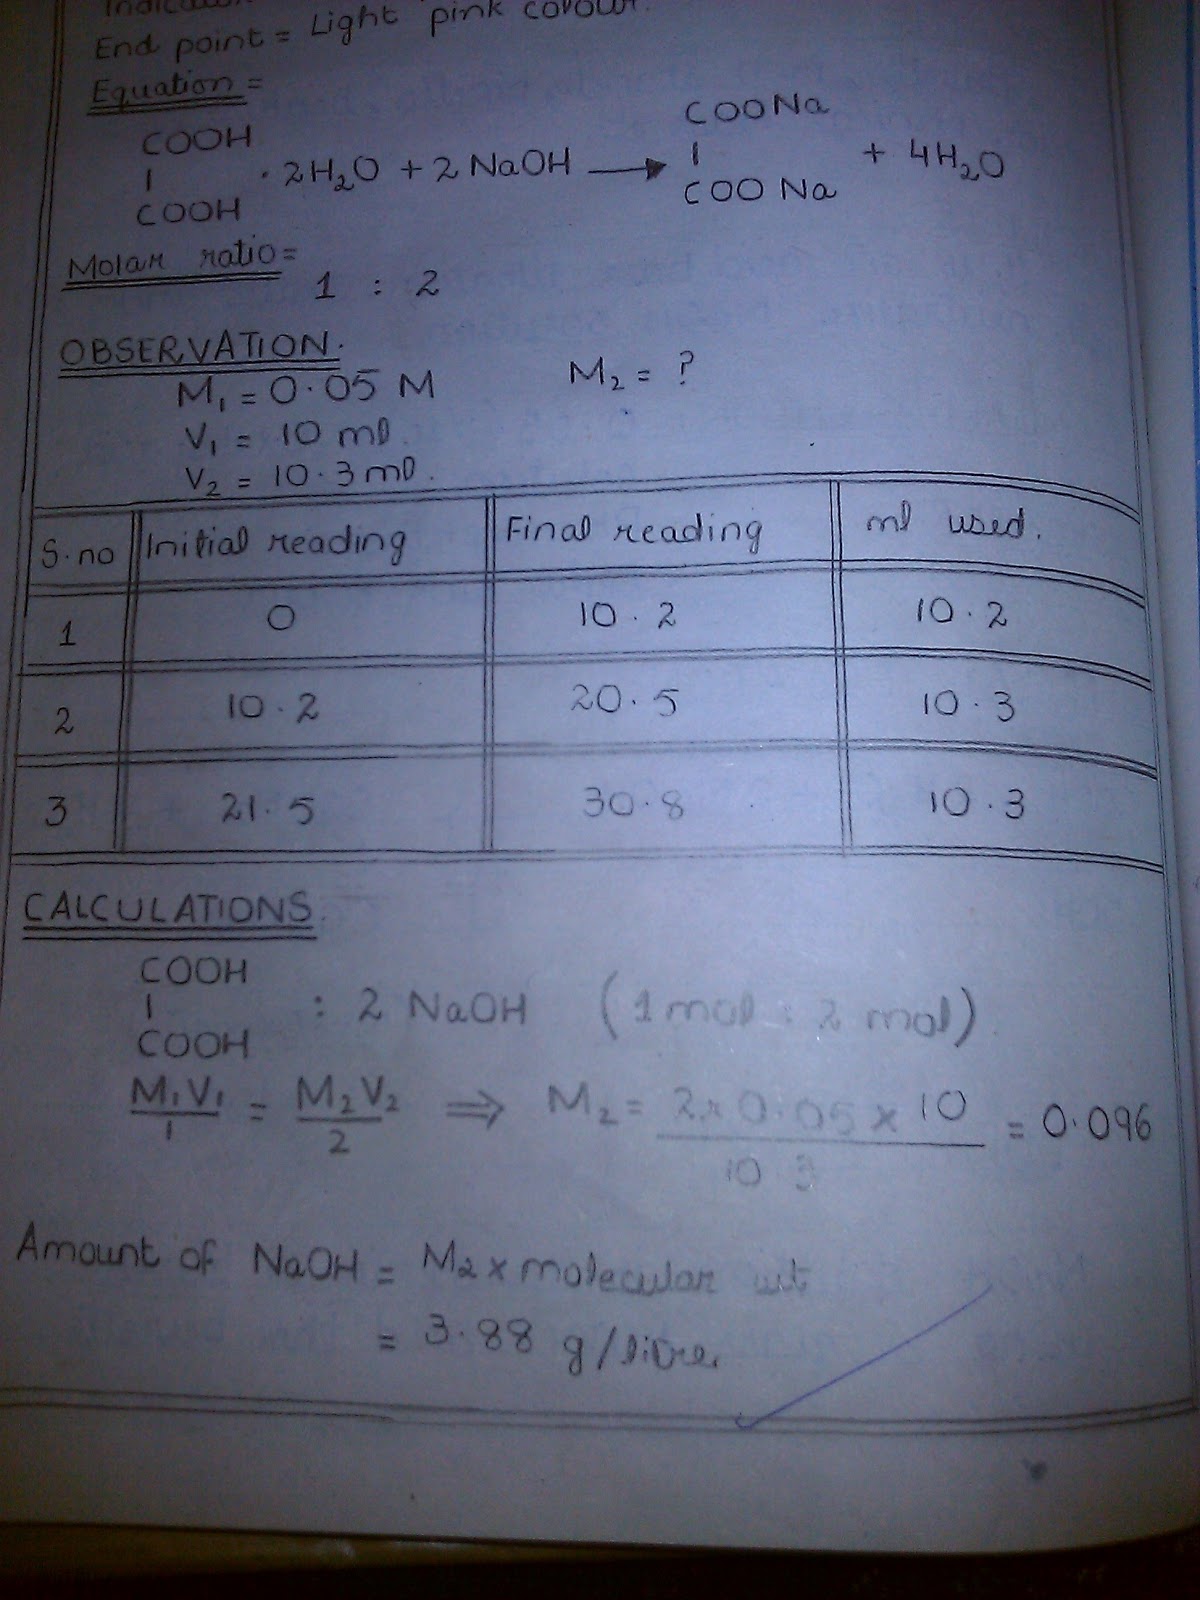 End point = Light pink colour.
Equation =
COOH
COONa
| · 2H₂O + 2 NaOH → | + 4H₂O
COOH
COO Na
Molar ratio =
1 : 2
OBSERVATION.
M₁ = 0.05 M M₂ = ?
V₁ = 10 ml.
V₂ = 10.3 ml.
S.no Initial reading Final reading ml used.
1 0 10.2 10.2
2 10.2 20.5 10.3
3 21.5 30.8 10.3
CALCULATIONS.
COOH
| : 2 NaOH (1 mol : 2 mol)
COOH
M₁V₁/1 = M₂V₂/2 ⇒ M₂ = 2 x 0.05 x 10/10.3 = 0.096
Amount of NaOH = M₂ x molecular wt
= 3.88 g/litre.